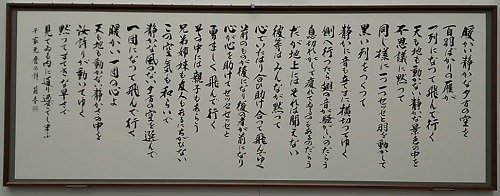 暖かい静かな夕方の空を
百羽ばかりの雁が
一列になって飛んで行く
天も地も動かない静かな景色の中を
不思議に黙って
同じ様に一つ一つセッセと羽を動かして
黒い列をつくって
静かに音も立てずに横切ってゆく
側へ行ったら翅の音が騒がしいのだらう
息切れがして疲れて居るのもあるのだらう
だが地上にはそれは聞えない
彼等はみんなが黙って
心でいたはり合ひ助け合って飛んでゆく
前のものが後になり後の者が前になり
心が心を助けてセッセセッセと
勇ましく飛んで行く
その中には親子もあらう
兄弟姉妹も友人もあるにちがひない
この空気も和いで
静かな風のない夕方の空を選んで
一団になって飛んで行く
暖かい一団の心よ
天も地も動かない静かさの中を
汝許りが動いてゆく
黙ってすてきな早さで
見てゐる内に通り過ぎてしまふ
千家元麿の詩